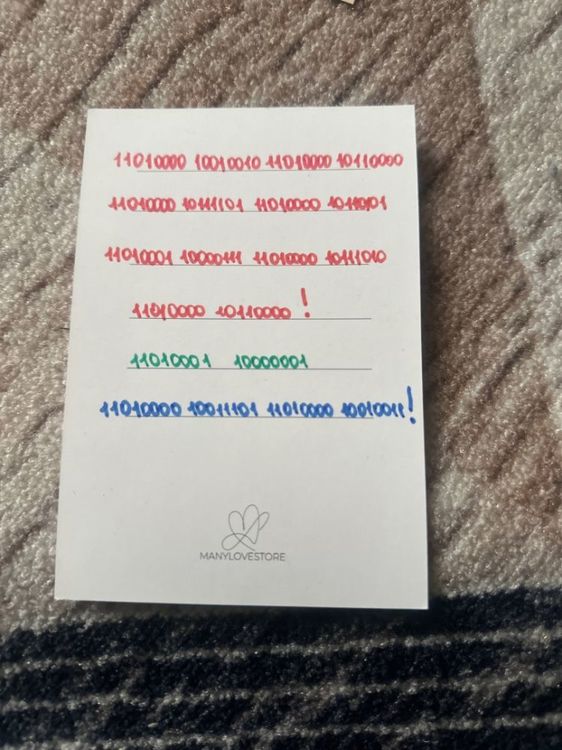 11010000 10010010 11010000 10110000
11010000 10111101 11010000 10110101
11010001 10000111 11010000 10111010
11010000 10110000 !
11010001 10000001
11010000 10011101 11010000 10010011!
MANYLOVESTORE